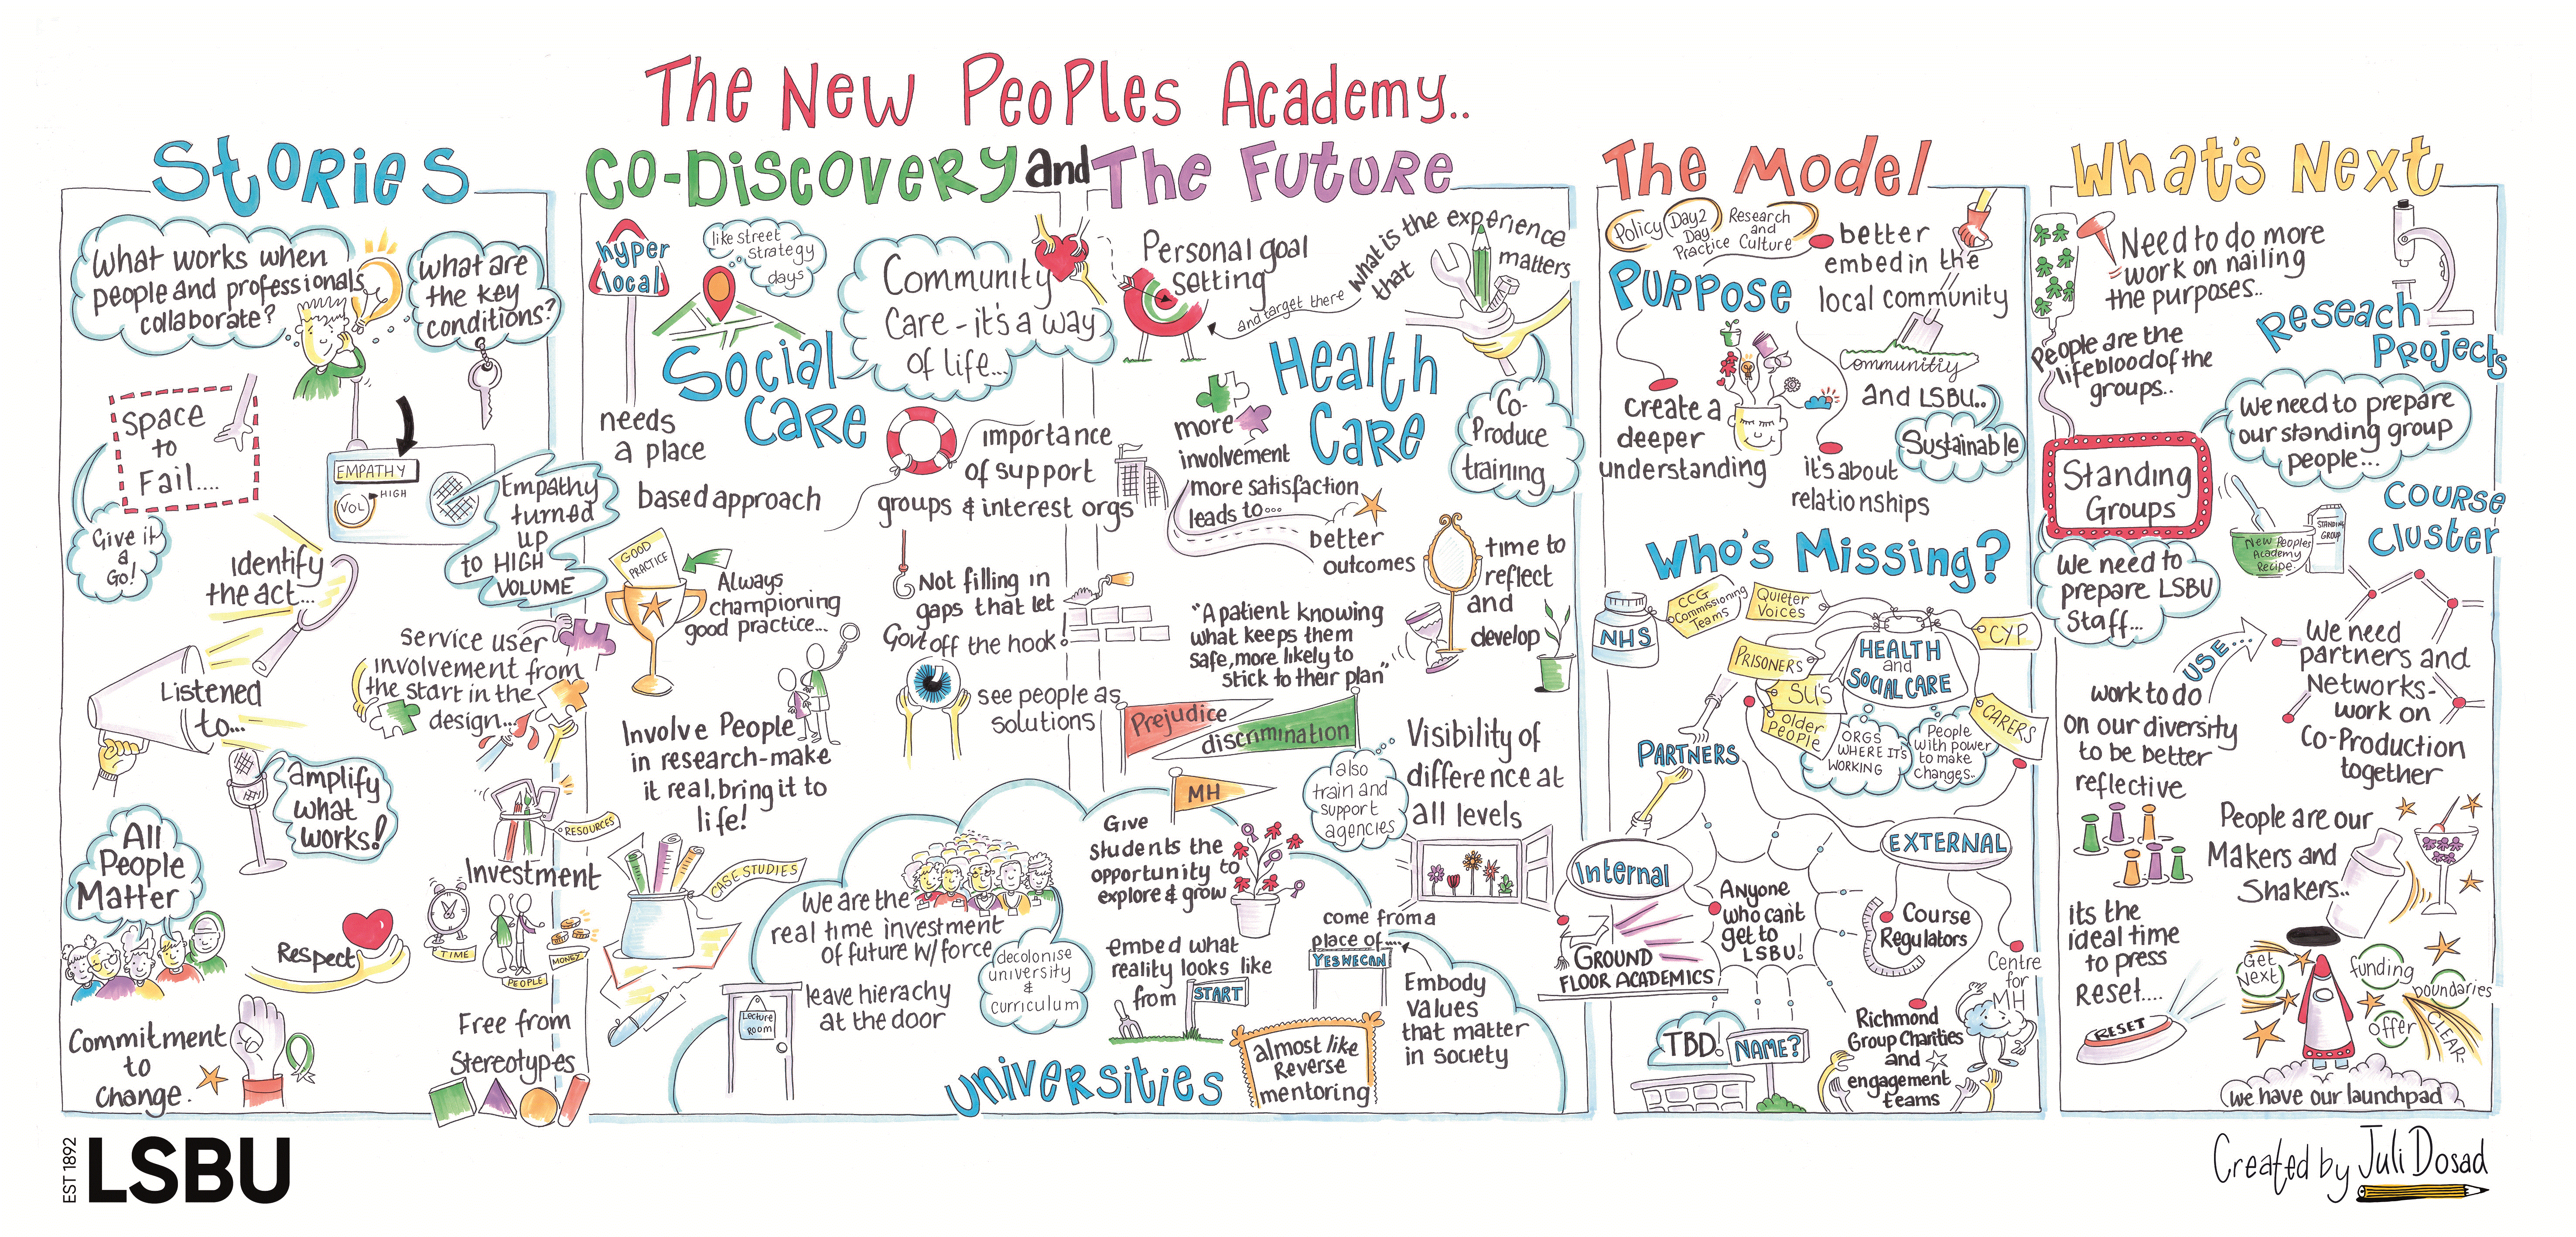 The New Peoples Academy..
Stories
What works when
people and professionals
collaborate?
what are
the key
conditions?
Space
to
Fail....
Give it
a
Go!
EMPATHY
VOL
HIGH
Empathy
turned
up
to HIGH
VOLUME
Identify
the act...
Listened
to...
service user
involvement from
the start in the
design...
amplify
what
works!
All
People
Matter
RESOURCES
Investment
TIME
PEOPLE
MONEY
Respect
Commitment
to
Change.
Free from
Stereotypes
Co-Discovery and The Future
hyper
local
like street
strategy
days
Social
Care
needs
a place
based approach
Community
Care - it's a way
of life...
importance
of support
groups & interest orgs
GOOD
PRACTICE
Always
championing
good practice...
Not filling in
gaps that let
Govt off the hook!
see people as
solutions
Involve People
in research-make
it real, bring it to
life!
CASE STUDIES
Personal goal
setting
and target there
what is the experience
that
matters
Health
Care
Co-
Produce
training
more
involvement
more satisfaction
leads to...
better
outcomes
time to
reflect
and
develop
"A patient knowing
what keeps them
safe, more likely to
stick to their plan"
Prejudice
discrimination
MH
also
train and
support
agencies
Visibility of
difference at
all levels
We are the
real time investment
of future w/force
decolonise
university
&
curriculum
Lecture
Room
leave hierachy
at the door
Universities
Give
Students the
opportunity to
explore & grow
embed what
reality looks like
from
START
almost like
Reverse
mentoring
come from a
place of....
YES WE CAN
Embody
values
that matter
in society
The Model
Policy
Day 2
Day
Practice
Research
and
Culture
Purpose
better
embed in the
local community
Communitiy
and LSBU..
Sustainable
create a
deeper
understanding
it's about
relationships
Who's Missing?
NHS
CCG
Commissioning
Teams
Quieter
Voices
CYP
PRISONERS
SU'S
older
People
HEALTH
and
SOCIAL CARE
CARERS
ORGS
WHERE IT'S
WORKING
People
with power
to make
changes..
PARTNERS
Internal
EXTERNAL
GROUND
FLOOR ACADEMICS
Anyone
who can't
get to
LSBU!
Course
Regulators
Centre
for
MH
TBD!
NAME?
Richmond
Group Charities
and
engagement
teams
What's Next
Need to do more
work on nailing
the purposes..
People are the
lifeblood of the
groups..
Reseach
Projects
We need to prepare
our standing group
people...
Standing
Groups
STANDING
GROUP
New Peoples
Academy
Recipe
Course
Cluster
We need to
prepare LSBU
Staff...
USE...
work to do
on our diversity
to be better
reflective
We need
partners and
Networks-
work on
Co-Production
together
People are our
Makers and
Shakers..
its the
ideal time
to press
Reset....
RESET
Get
Next
funding
boundaries
offer
CLEAR
we have our launchpad
EST 1892
LSBU
Created by Juli Dosad